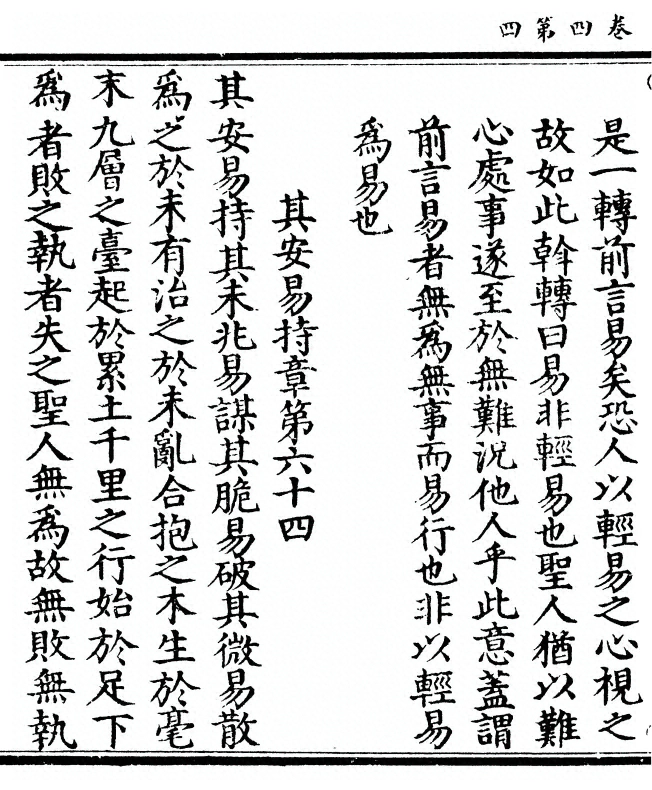 卷四第四
是一轉前言易矣恐人以輕易之心視之
故如此斡轉曰易非輕易也聖人猶以難
心處事遂至於無難況他人乎此意蓋謂
前言易者無為無事而易行也非以輕易
為易也
其安易持章第六十四
其安易持其未兆易謀其脆易破其微易散
為之於未有治之於未亂合抱之木生於毫
末九層之臺起於累土千里之行始於足下
為者敗之執者失之聖人無為故無敗無執